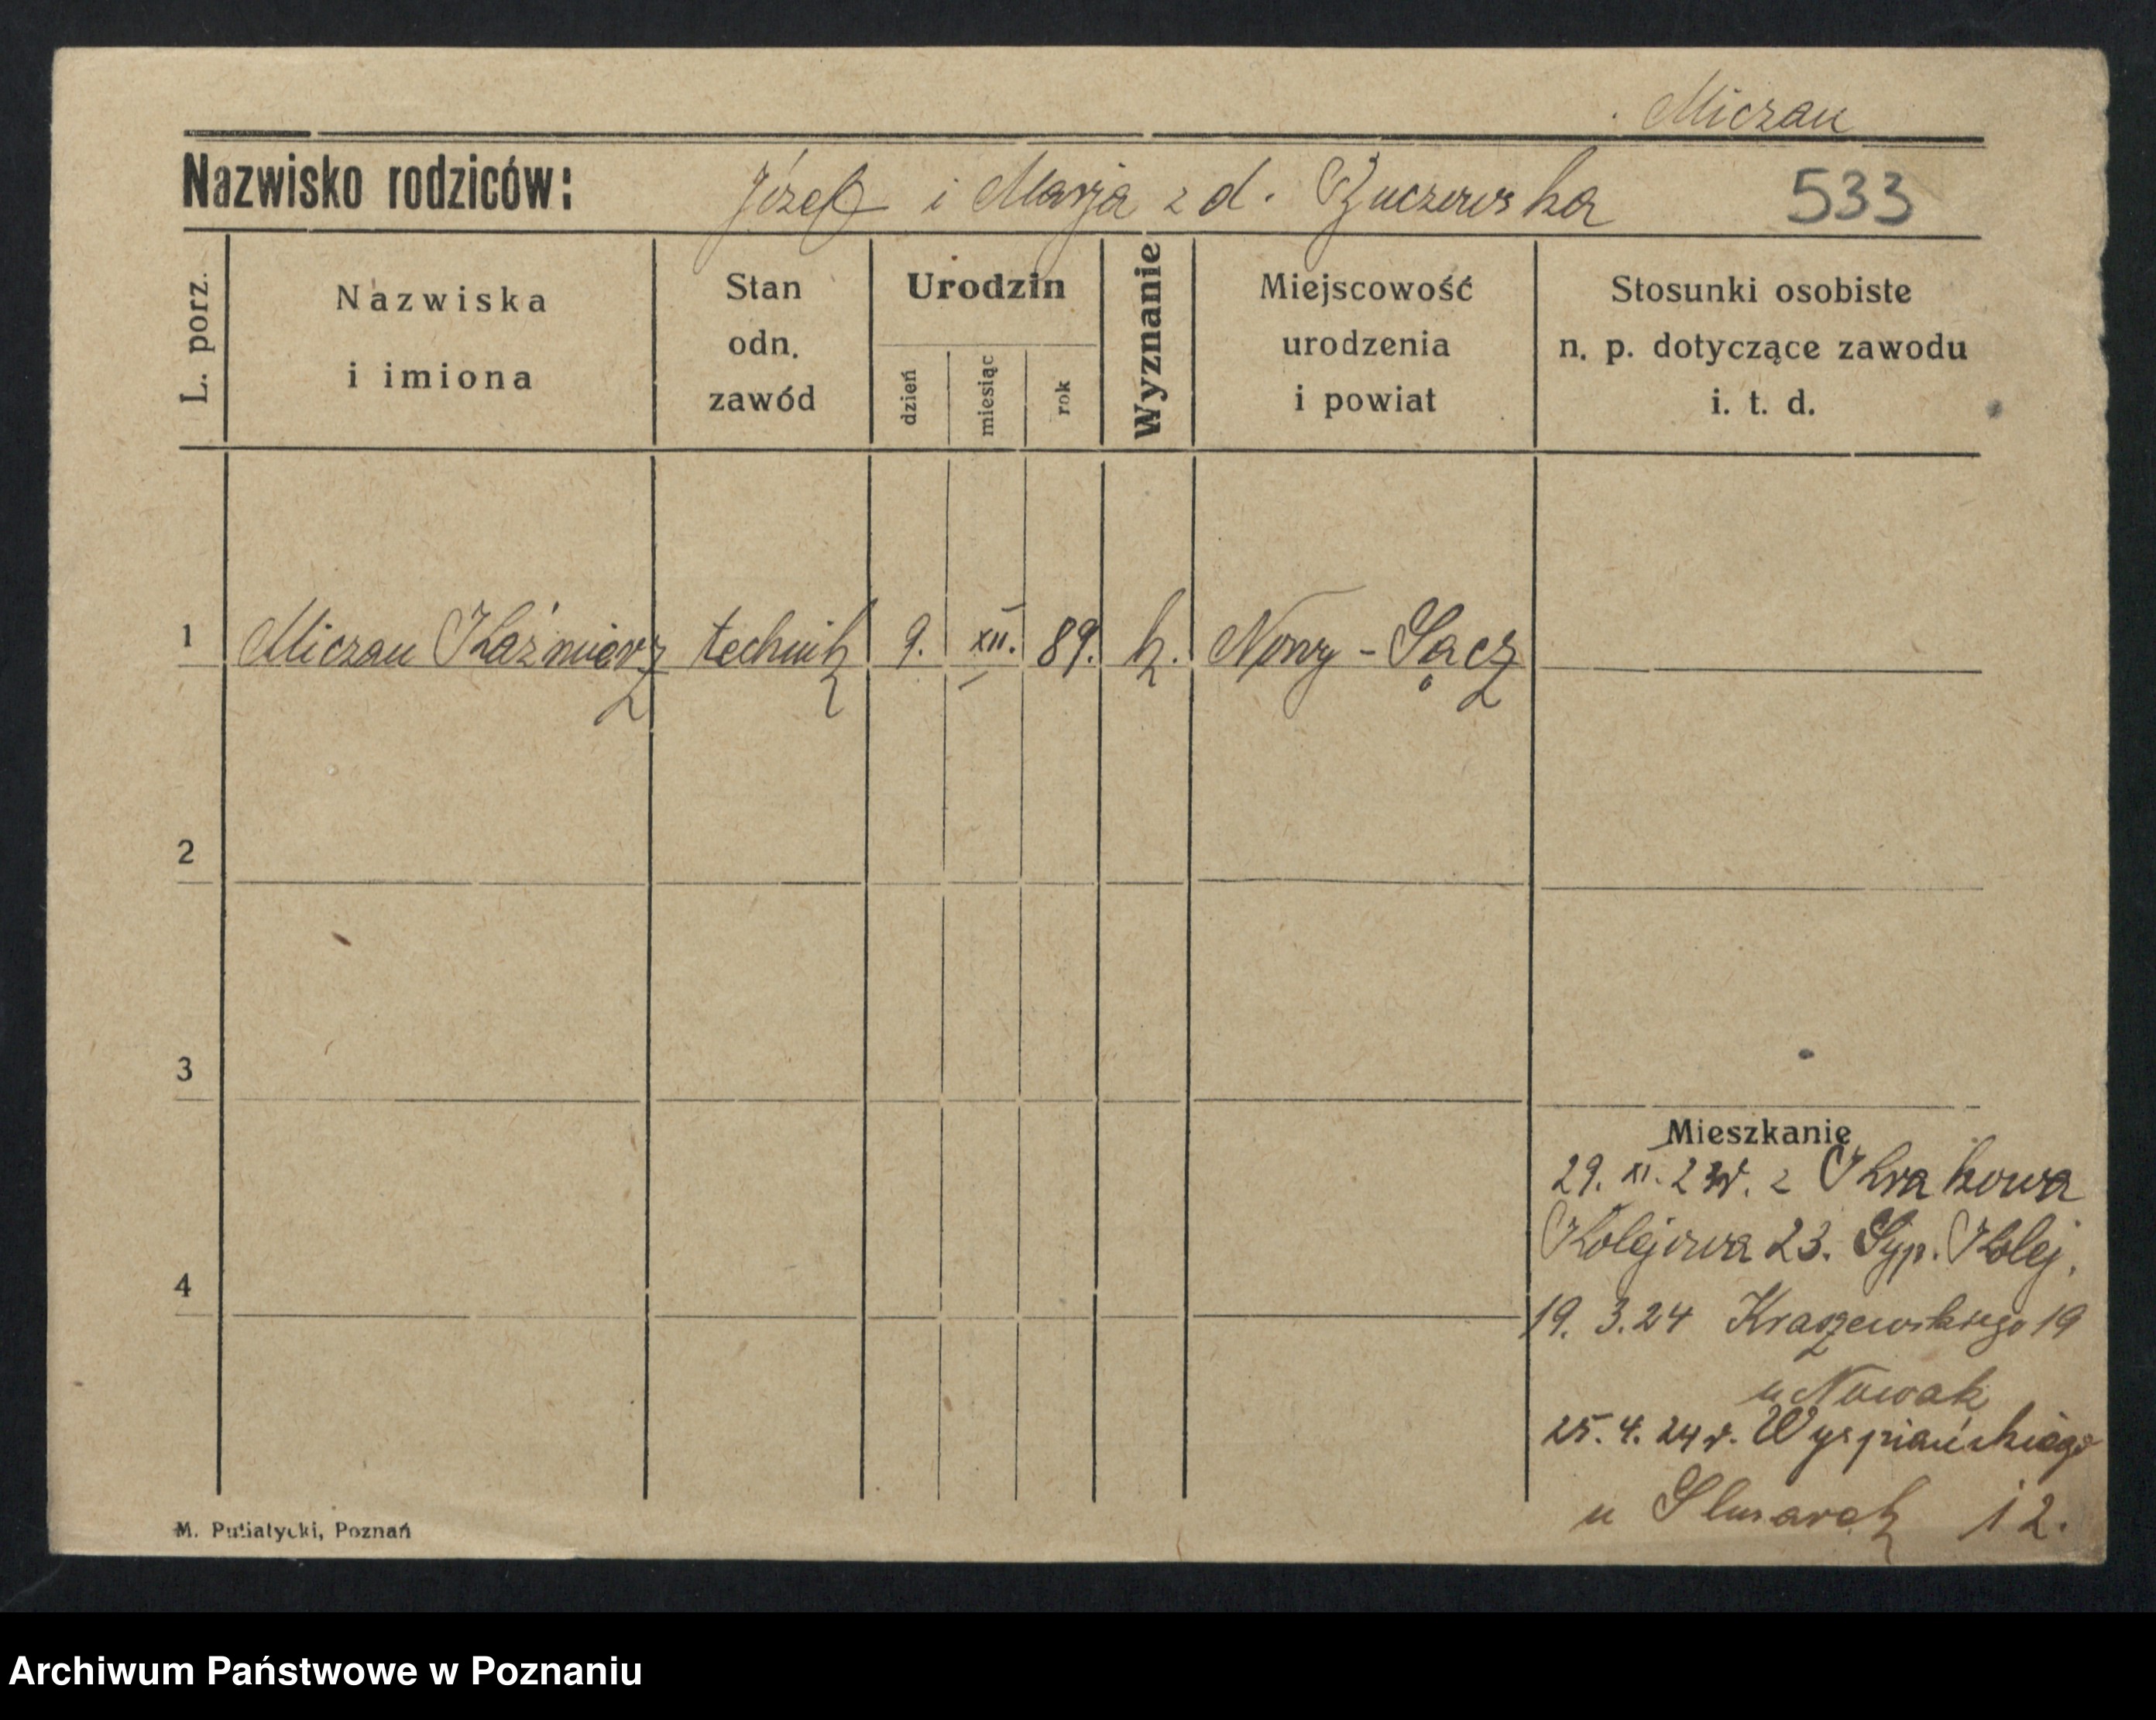 Miczan
Nazwisko rodziców: Józef i Marja z d. 533
L. porz.
Nazwiska i imiona
Stan odn. zawód
Urodzin
dzień
miesiąc
rok
Wyznanie
Miejscowość urodzenia i powiat
Stosunki osobiste n. p. dotyczące zawodu i. t. d.
1 Miczan Kaźmierz technik 9. XII. 89. k. Nowy-Sącz
2
3
4
Mieszkanie
29. XI. 23r. z Krakowa
Kolejowa 23. Syp. Kolej.
19. 3. 24 Kraszewskiego 19
u Nowak
25. 4. 24 r. Wyspiańskiego
u Slusarek 12.
M. Putiatycki, Poznań
Archiwum Państwowe w Poznaniu